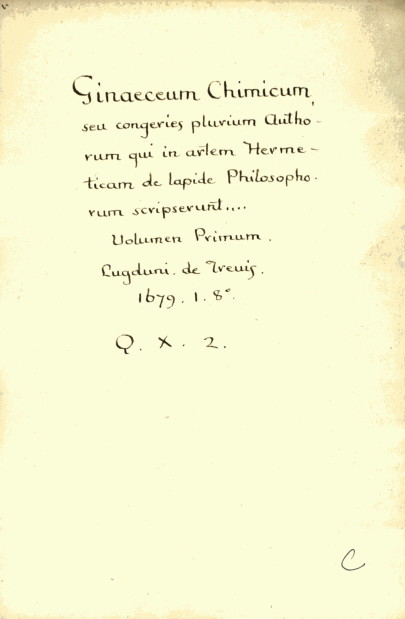 Ginaeceum Chimicum,
seu congeries plurium Autho-
rum qui in artem Herme-
ticam de lapide Philosopho.
rum scripserunt....
Volumen Primum.
Lugduni. de Treuis.
1679. 1. 8°.
Q. X. 2.
C